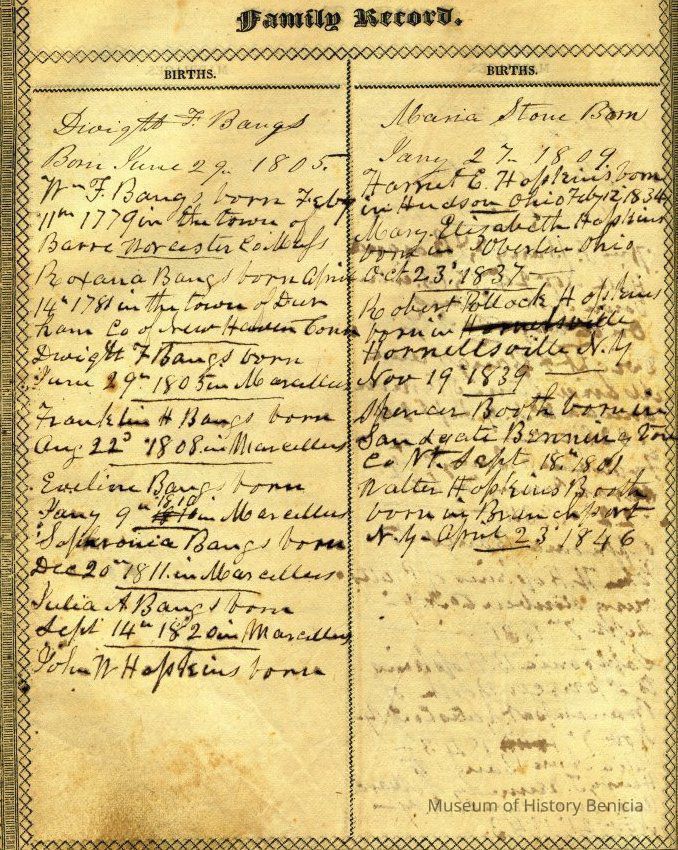 Family Record.
BIRTHS.
Dwight F. Bangs
Born June 29th 1805.
Wm F. Bangs born Feby
11th 1779 in the town of
Barre Worcester Co Mass
Roxana Bangs born April
14th 1781 in the town of Dur
ham Co of New Haven Conn
Dwight F Bangs born
June 29th 1805 in Marcellus
Franklin H Bangs born
Aug 22d 1808 in Marcellus
Eveline Bangs born
Jany 9th 1810 in Marcellus
Sophronia Bangs born
Dec 20th 1811 in Marcellus
Julia A Bangs born
Sept 14th 1820 in Marcellus
John W Hopkins born
BIRTHS.
Maria Stone Born
Jany 27th 1809
Harriet E. Hopkins born
in Hudson Ohio Feby 12, 1834
Mary Elizabeth Hopkins
born in Oberlin Ohio
Oct 23d 1837
Robert Pollock Hopkins
born in
Hornellsville N.Y
Nov 19th 1839
Spencer Booth born in
Sandgate Bennington
Co Vt. Sept 18th 1801
Walter Hopkins Booth
born in Branchport
N.Y. April 23d 1846
Museum of History Benicia